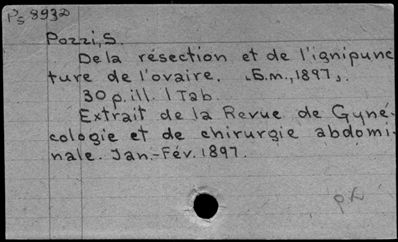 Ps 8932
Pozzi, S.
De la résection et de l'ignipunc
ture de l'ovaire. [Б.m., 1897].
30 p. ill. 1 Tab.
Extrait de la Revue de Gyné-
cologie et de chirurgie abdomi-
nale. Jan.-Fév. 1897.